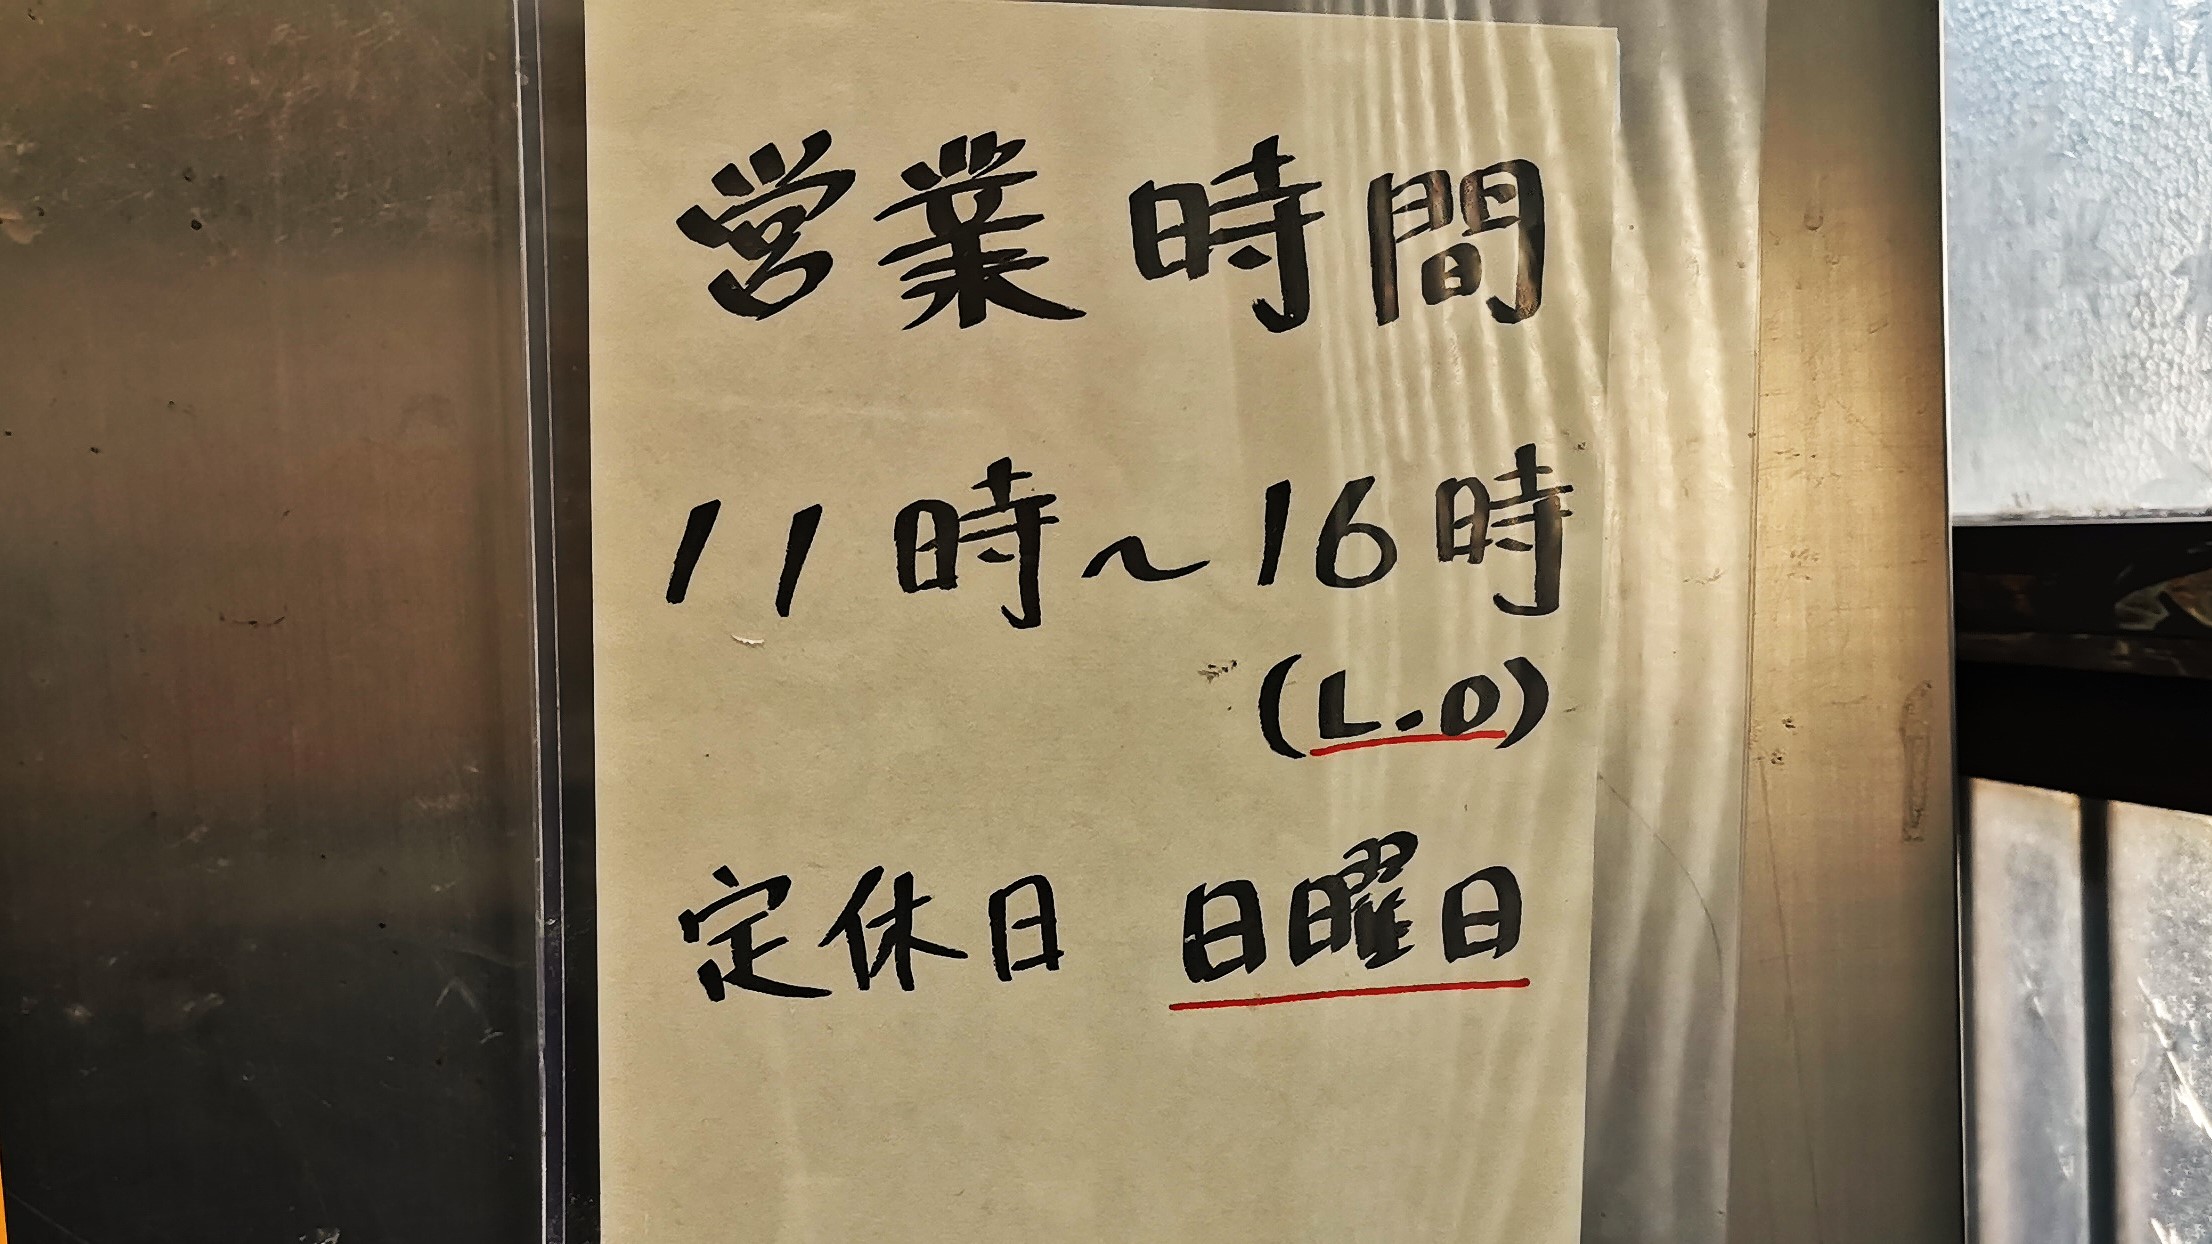 営業時間
11時〜16時
(L.O)
定休日 日曜日